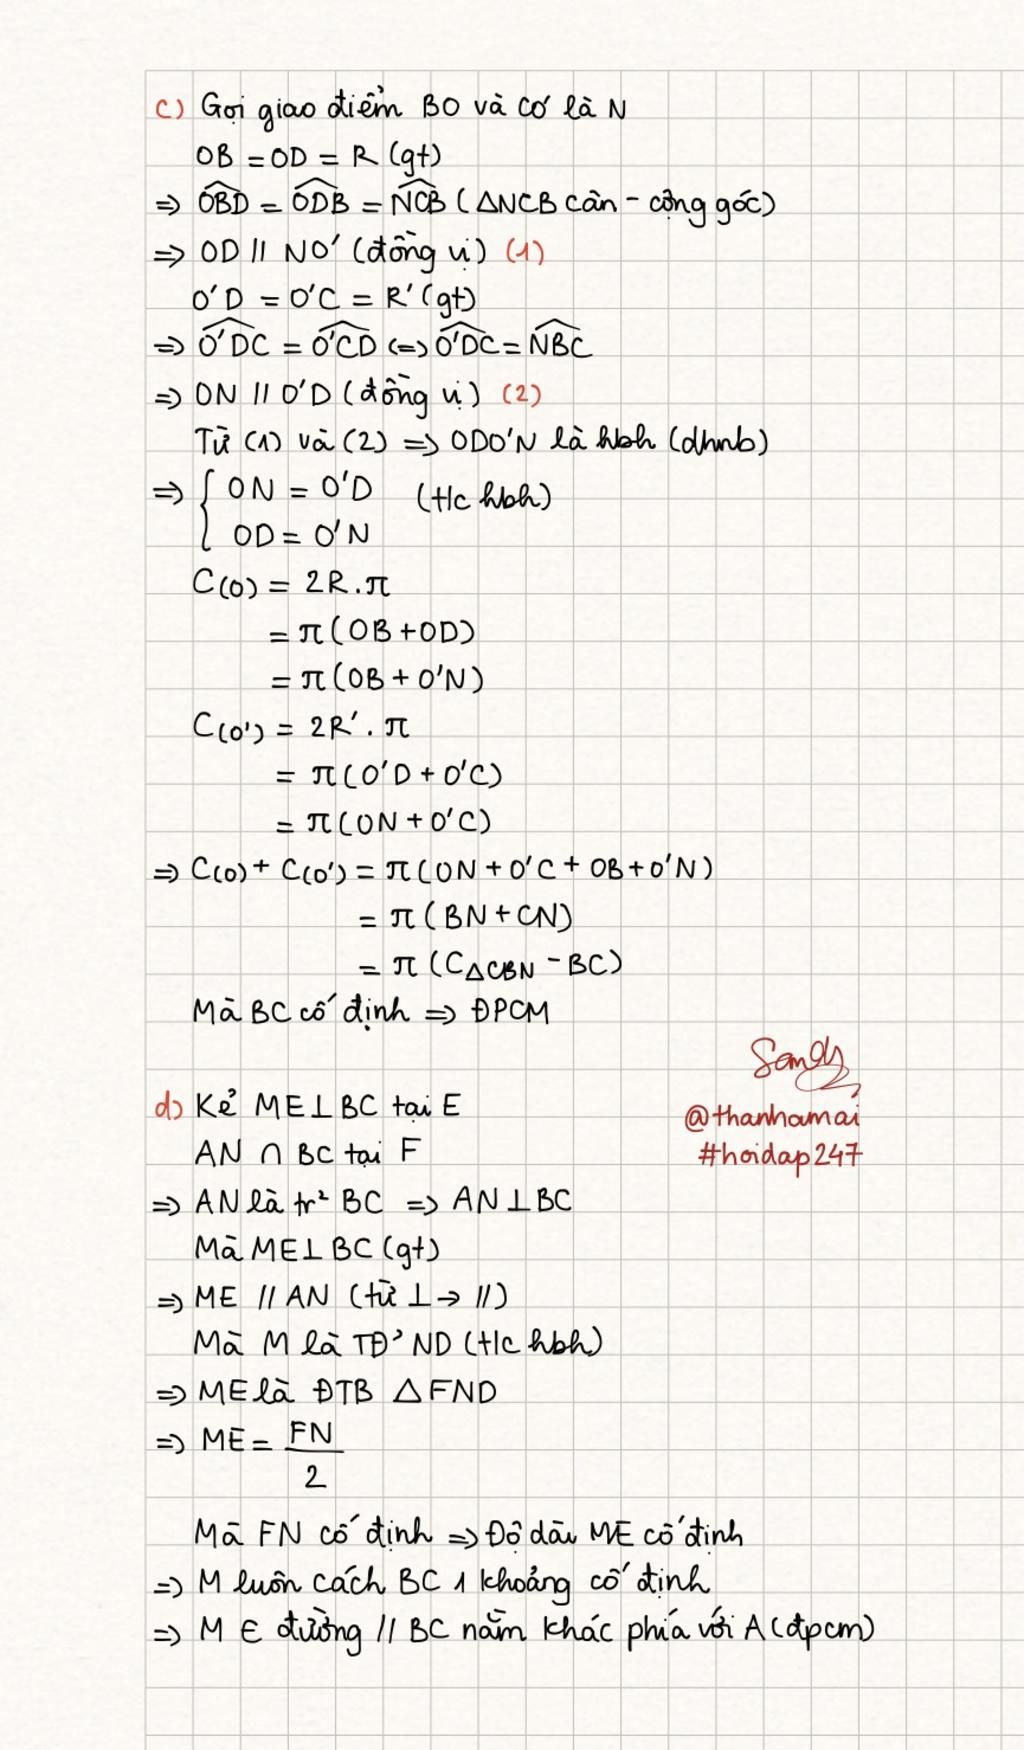 c) Gọi giao điểm BO và CO' là N
OB = OD = R (gt)
⇒ \widehat{OBD} = \widehat{ODB} = \widehat{NCB} (ΔNCB cân - cộng góc)
⇒ OD // NO' (đồng vị) (1)
O'D = O'C = R' (gt)
⇒ \widehat{O'DC} = \widehat{O'CD} (=> \widehat{O'DC} = \widehat{NBC}
⇒ ON // O'D (đồng vị) (2)
Từ (1) và (2) ⇒ ODO'N là hbh (dhnb)
⇒ { ON = O'D (t/c hbh)
OD = O'N
C(O) = 2R.π
= π(OB + OD)
= π(OB + O'N)
C(O') = 2R'.π
= π(O'D + O'C)
= π(ON + O'C)
⇒ C(O) + C(O') = π(ON + O'C + OB + O'N)
= π(BN + CN)
= π(C_{ΔCBN} - BC)
Mà BC cố định ⇒ ĐPCM
Sandy
d) Kẻ ME⊥BC tại E
@thanhamai
AN ∩ BC tại F
#hoidap247
⇒ AN là tr² BC ⇒ AN⊥BC
Mà ME⊥BC (gt)
⇒ ME // AN (từ ⊥ → //)
Mà M là TĐ' ND (t/c hbh)
⇒ ME là ĐTB Δ FND
⇒ ME = FN/2
Mà FN cố định ⇒ Độ dài ME cố định
⇒ M luôn cách BC 1 khoảng cố định
⇒ M ∈ đường // BC nằm khác phía với A (đpcm)